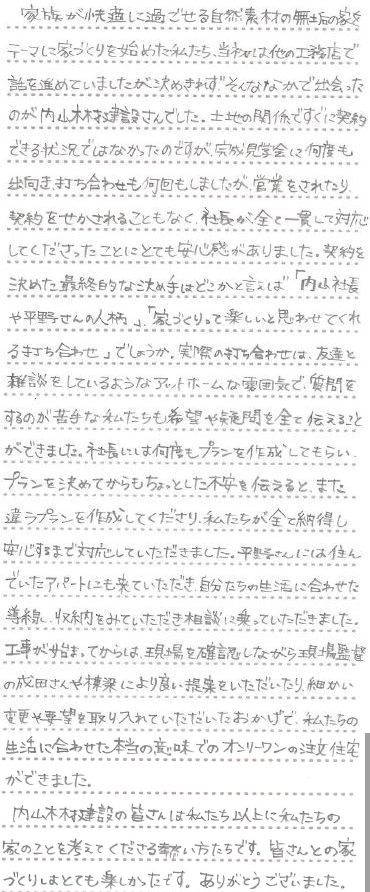 家族が快適に過ごせる自然素材の無垢の家を
テーマに家づくりを始めた私たち、当初は他の工務店で
話を進めていましたが決めきれず、そんななかで出会った
のが内山木材建設さんでした。土地の関係ですぐに契約
できる状況ではなかったのですが、完成見学会に何度も
出向き、打ち合わせも何回もしましたが、営業をされたり
契約をせかされることもなく、社長が全て一貫して対応
してくださったことにとても安心感がありました。契約を
決めた最終的な決め手はどこかと言えば「内山社長
や平野さんの人柄」、「家づくりって楽しいと思わせてくれ
る打ち合わせ」でしょうか。実際の打ち合わせは、友達と
雑談をしているようなアットホームな雰囲気で、質問を
するのが苦手な私たちも希望や疑問を全て伝えること
ができました。社長には何度もプランを作成してもらい、
プランを決めてからもちょっとした不安を伝えると、また
違うプランを作成してくださり、私たちが全て納得し
安心するまで対応していただきました。平野さんには住ん
でいたアパートにも来ていただき、自分たちの生活に合わせた
導線、収納をみていただき相談に乗っていただきました。
工事が始まってからは、現場を確認しながら現場監督
の成田さんや棟梁により良い提案をいただいたり、細かい
変更や要望を取り入れていただいたおかげで、私たちの
生活に合わせた本当の意味でのオンリーワンの注文住宅
ができました。
内山木材建設の皆さんは私たち以上に私たちの
家のことを考えてくださる熱い方たちです。皆さんとの家
づくりはとても楽しかったです。ありがとうございました。